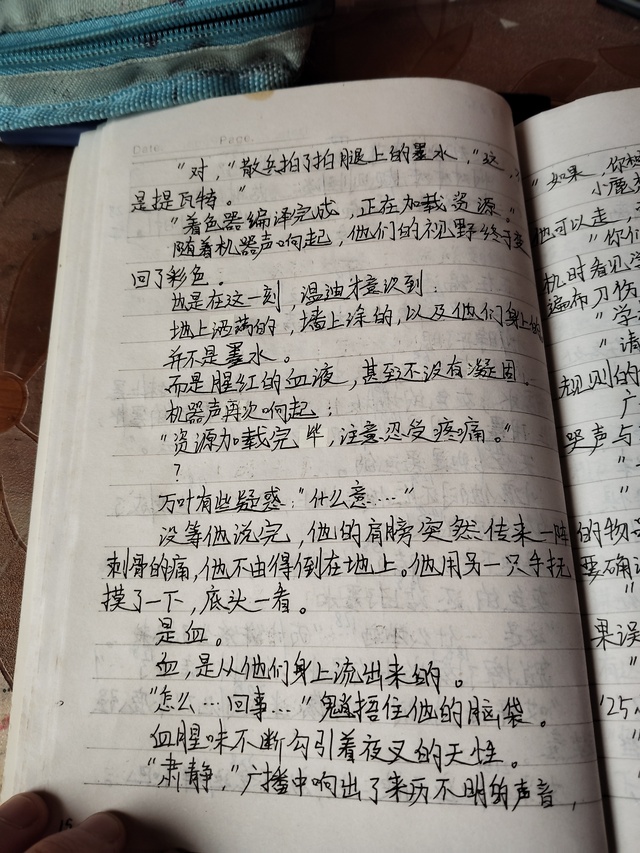 Date. Page.
"对，"散兵拍了拍腿上的墨水，"这，
是提瓦特。"
"着色器编译完成，正在加载资源。"
随着机器声响起，他们的视野终于变
回了彩色。
也是在这一刻，温迪才意识到：
地上洒满的，墙上涂的，以及他们身上的
并不是墨水。
而是腥红的血液，甚至还没有凝固。
机器声再次响起：
"资源加载完毕，注意忍受疼痛。"
？
万叶有些疑惑："什么意……"
没等他说完，他的肩膀突然传来一阵
刺骨的痛，他不由得倒在地上。他用另一只手抚
摸了一下，底头一看。
是血。
血，是从他们身上流出来的。
"怎么…回事…"魈捂住他的脑袋。
血腥味不断勾引着夜叉的天性。
"肃静，"广播中响出了来历不明的声音，
"如果，你
小鹿
他可以走，
"你们
机时看见
遍布刀伤
"学
"请
规则的
广
哭声与
"
"
的物
要确认
"
果误
"
"25
"
"